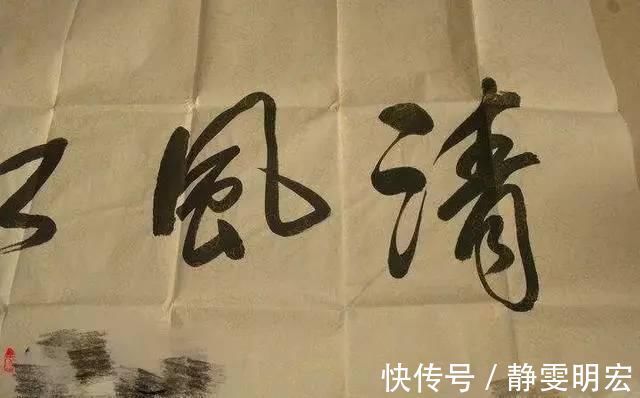 清風
快传号 / 静雯明宏